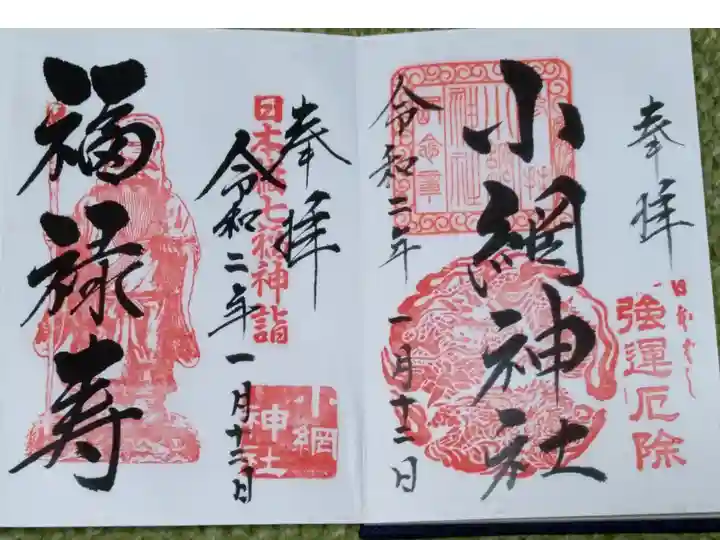 奉拝
日本ばし
強運厄除
小網神社
令和二年一月十二日
奉拝
日本橋七福神詣
令和二年一月十二日
小網神社
福禄寿